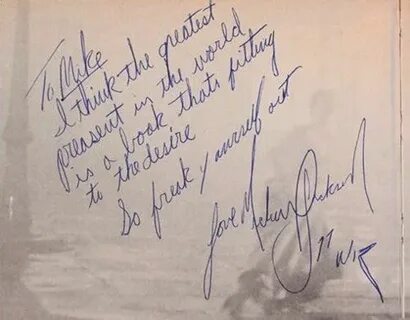 To Mike
I think the greatest
preasent in the world
is a book thats fitting
to the desire
So freak yourself out
Love Michael Jackson